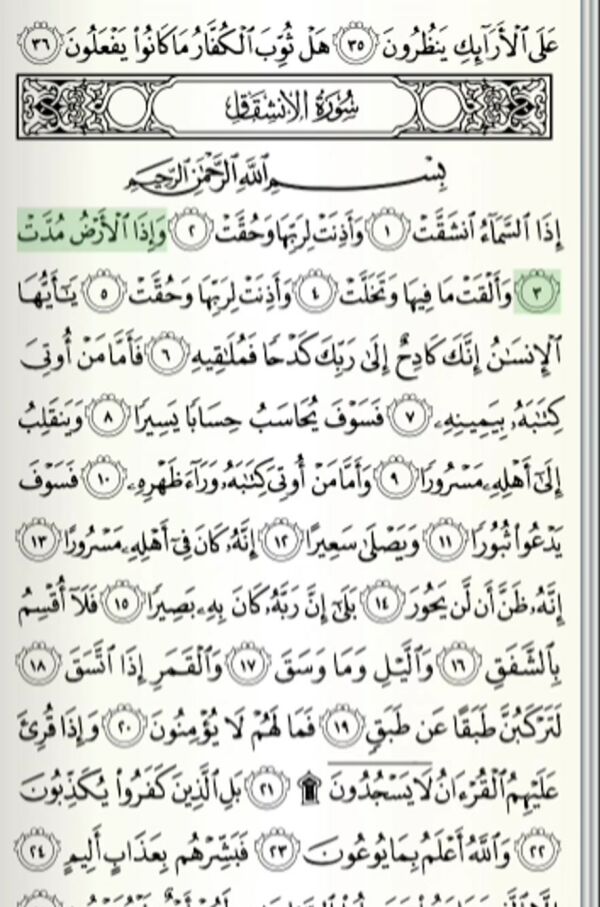 عَلَى ٱلْأَرَآئِكِ يَنظُرُونَ ٣٥ هَلْ ثُوِّبَ ٱلْكُفَّارُ مَا كَانُوا۟ يَفْعَلُونَ ٣٦
سُورَةُ الِانشِقَاقِ
بِسْمِ ٱللَّهِ ٱلرَّحْمَٰنِ ٱلرَّحِيمِ
إِذَا ٱلسَّمَآءُ ٱنشَقَّتْ ١ وَأَذِنَتْ لِرَبِّهَا وَحُقَّتْ ٢ وَإِذَا ٱلْأَرْضُ مُدَّتْ
٣ وَأَلْقَتْ مَا فِيهَا وَتَخَلَّتْ ٤ وَأَذِنَتْ لِرَبِّهَا وَحُقَّتْ ٥ يَٰٓأَيُّهَا
ٱلْإِنسَٰنُ إِنَّكَ كَادِحٌ إِلَىٰ رَبِّكَ كَدْحًا فَمُلَٰقِيهِ ٦ فَأَمَّا مَنْ أُوتِىَ
كِتَٰبَهُۥ بِيَمِينِهِۦ ٧ فَسَوْفَ يُحَاسَبُ حِسَابًا يَسِيرًا ٨ وَيَنقَلِبُ
إِلَىٰٓ أَهْلِهِۦ مَسْرُورًا ٩ وَأَمَّا مَنْ أُوتِىَ كِتَٰبَهُۥ وَرَآءَ ظَهْرِهِۦ ١٠ فَسَوْفَ
يَدْعُوا۟ ثُبُورًا ١١ وَيَصْلَىٰ سَعِيرًا ١٢ إِنَّهُۥ كَانَ فِىٓ أَهْلِهِۦ مَسْرُورًا ١٣
إِنَّهُۥ ظَنَّ أَن لَّن يَحُورَ ١٤ بَلَىٰٓ إِنَّ رَبَّهُۥ كَانَ بِهِۦ بَصِيرًا ١٥ فَلَآ أُقْسِمُ
بِٱلشَّفَقِ ١٦ وَٱلَّيْلِ وَمَا وَسَقَ ١٧ وَٱلْقَمَرِ إِذَا ٱتَّسَقَ ١٨
لَتَرْكَبُنَّ طَبَقًا عَن طَبَقٍ ١٩ فَمَا لَهُمْ لَا يُؤْمِنُونَ ٢٠ وَإِذَا قُرِئَ
عَلَيْهِمُ ٱلْقُرْءَانُ لَا يَسْجُدُونَ ۩ ٢١ بَلِ ٱلَّذِينَ كَفَرُوا۟ يُكَذِّبُونَ
٢٢ وَٱللَّهُ أَعْلَمُ بِمَا يُوعُونَ ٢٣ فَبَشِّرْهُم بِعَذَابٍ أَلِيمٍ ٢٤